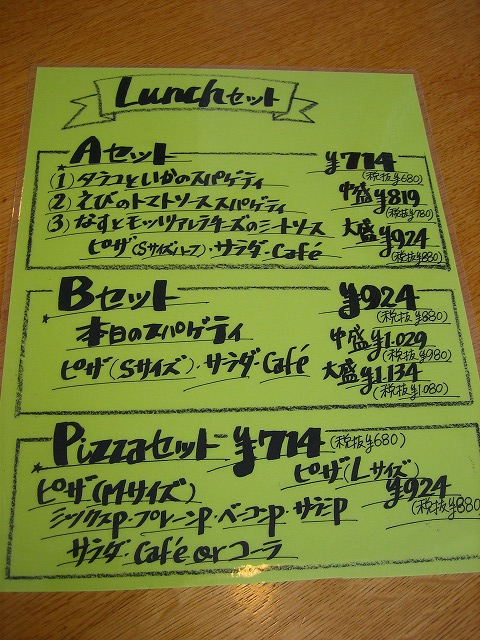 Lunchセット
Aセット ¥714
(税抜¥680)
(1) タラコといかのスパゲティ
中盛¥819
(税抜¥780)
(2) えびのトマトソーススパゲティ
(3) なすとモッツァレラチーズのミートソース
大盛¥924
(税抜¥880)
ピザ(Sサイズハーフ)・サラダ・Café
Bセット ¥924
(税抜¥880)
本日のスパゲティ
中盛¥1.029
(税抜¥980)
ピザ(Sサイズ)・サラダ・Café
大盛¥1.134
(税抜¥1.080)
Pizzaセット ¥714 (税抜¥680)
ピザ(Mサイズ) ピザ(Lサイズ)
¥924
(税抜¥880)
ミックスP・プレーンP・ベーコンP・サラミP
サラダ Café or コーラ